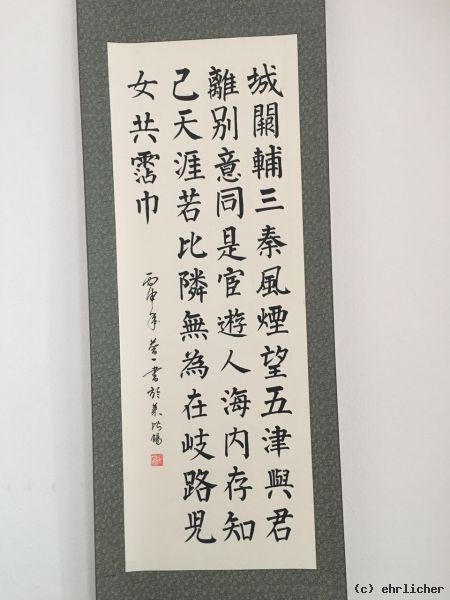 城闕輔三秦風煙望五津與君
離别意同是宦遊人海内存知
己天涯若比隣無為在岐路児
女共霑巾
丙申年 一書於萊比錫
(c) ehrlicher